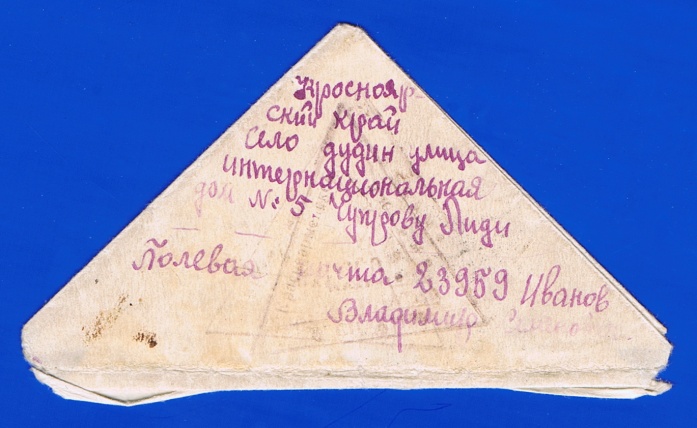 Краснояр-
ский край
село дудин улица
интернациональная
дом № 5 Чупрову Лиди
Полевая почта 23959 Иванов
Владимир